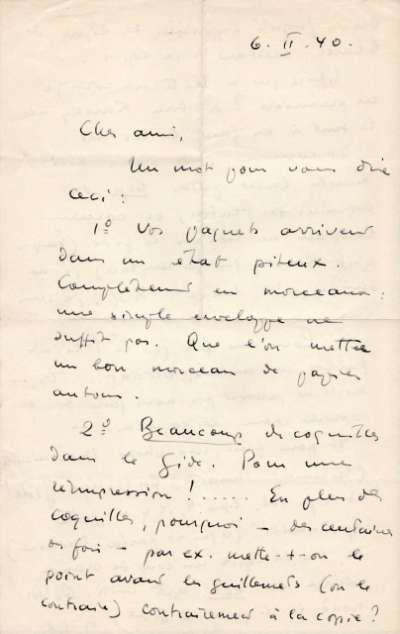 6. II. 40.
Cher ami,
Un mot pour vous dire
ceci :
1º Vos paquets arrivent
dans un état piteux.
Complètement en morceaux :
une simple enveloppe ne
suffit pas. Que l'on mette
un bon morceau de papier
autour.
2º Beaucoup de coquilles
dans le Gide. Pour une
réimpression !..... En plus des
coquilles, pourquoi – des centaines
de fois – par ex. mette-t-on le
point avant les guillemets (ou le
contraire) contrairement à la copie ?